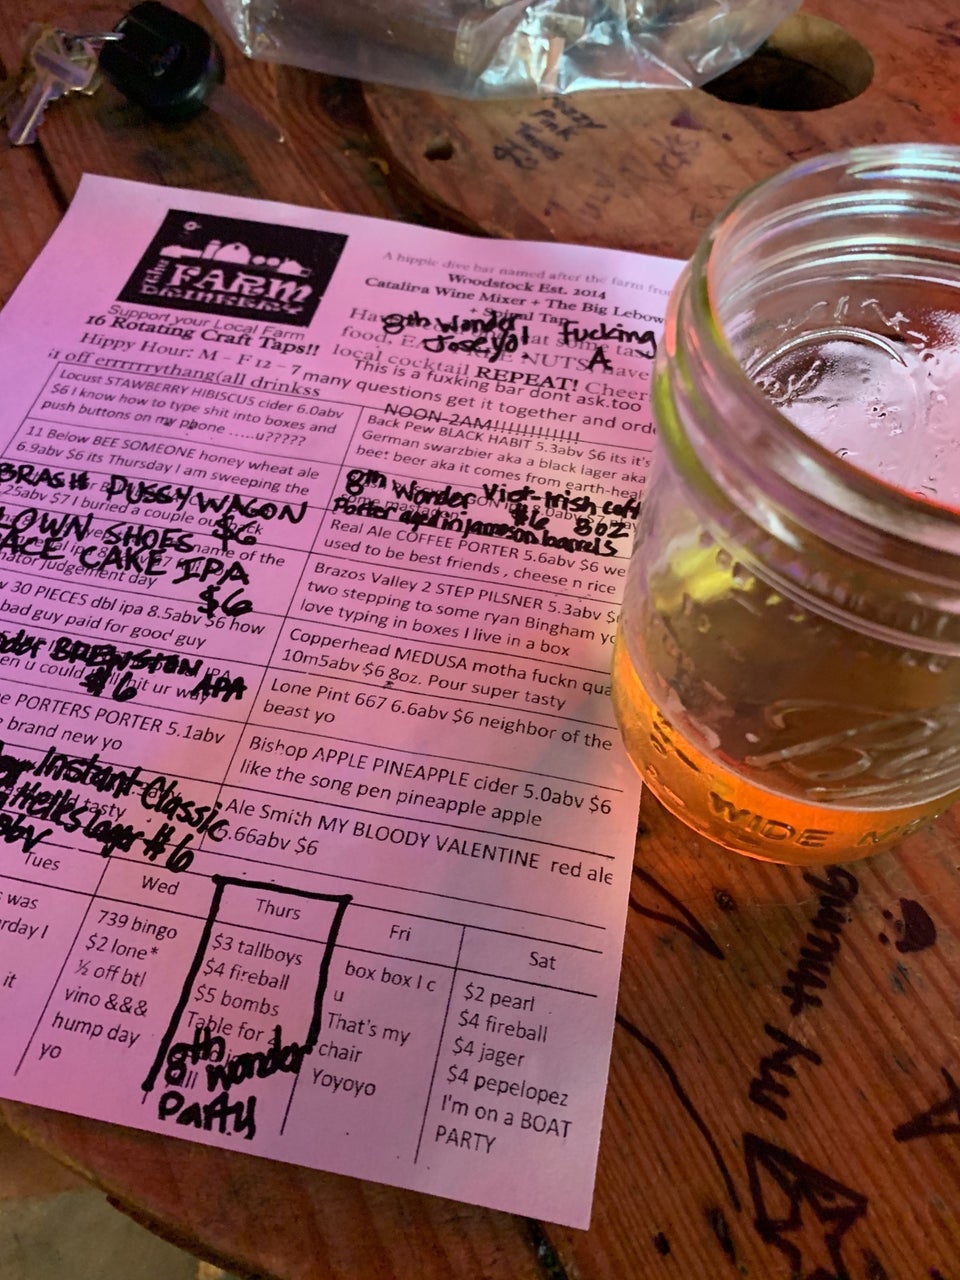 the
FARM
DRINKERY
Support your Local Farm
16 Rotating Craft Taps!!
Hippy Hour: M - F 12 - 7
off errrrrrythang(all drinkss
A hippie dive bar named after the farm
Woodstock Est. 2014
Catalina Wine Mixer + The Big Lebow
+ Spinal Tap
8th Wonder
Jose yo!
Fucking
A
local cocktail REPEAT! Cheer
This is a fuxking bar dont ask.too
many questions get it together and orde
NOON-2AM!!!!!!!!!!!!!
Locust STAWBERRY HIBISCUS cider 6.0abv
$6 I know how to type shit into boxes and
push buttons on my phone .....u?????
Back Pew BLACK HABIT 5.3abv $6 its it's
German swarzbier aka a black lager aka
beet beer aka it comes from earth-heal
11 Below BEE SOMEONE honey wheat ale
6.9abv $6 its Thursday I am sweeping the
8th Wonder Viet-Irish coff
$6 8oz
Porter aged in jameson barrels
BRASH PUSSYWAGON
$6
25abv $7 I buried a couple out back
Real Ale COFFEE PORTER 5.6abv $6 we
used to be best friends , cheese n rice
CLOWN SHOES
SPACE CAKE IPA
$6
judgement day
Brazos Valley 2 STEP PILSNER 5.3abv $6
two stepping to some ryan Bingham yo
love typing in boxes I live in a box
30 PIECES dbl ipa 8.5abv $6 how
bad guy paid for good guy
Copperhead MEDUSA motha fuckn qua
10m5abv $6 8oz. Pour super tasty
BREWSTON
IPA
$6
Lone Pint 667 6.6abv $6 neighbor of the
beast yo
PORTERS PORTER 5.1abv
brand new yo
Bishop APPLE PINEAPPLE cider 5.0abv $6
like the song pen pineapple apple
Instant Classic
Helles lager $6
tasty
Ale Smith MY BLOODY VALENTINE red ale
6.66abv $6
Tues
was
it
Wed
739 bingo
$2 lone*
½ off btl
vino &&&
hump day
yo
Thurs
$3 tallboys
$4 fireball
$5 bombs
Table for
8th Wonder
Party
Fri
box box I c
u
That's my
chair
Yoyoyo
Sat
$2 pearl
$4 fireball
$4 jager
$4 pepelopez
I'm on a BOAT
PARTY
WIDE MOU